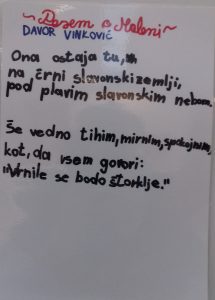 ~Pesem o Maleni~
DAVOR VINKOVIĆ
Ona ostaja tu,
na črni slavonski zemlji,
pod plavim slavonskim nebom.
Še vedno tihim, mirnim, spokojnim,
kot, da vsem govori:
"Vrnile se bodo štorklje."